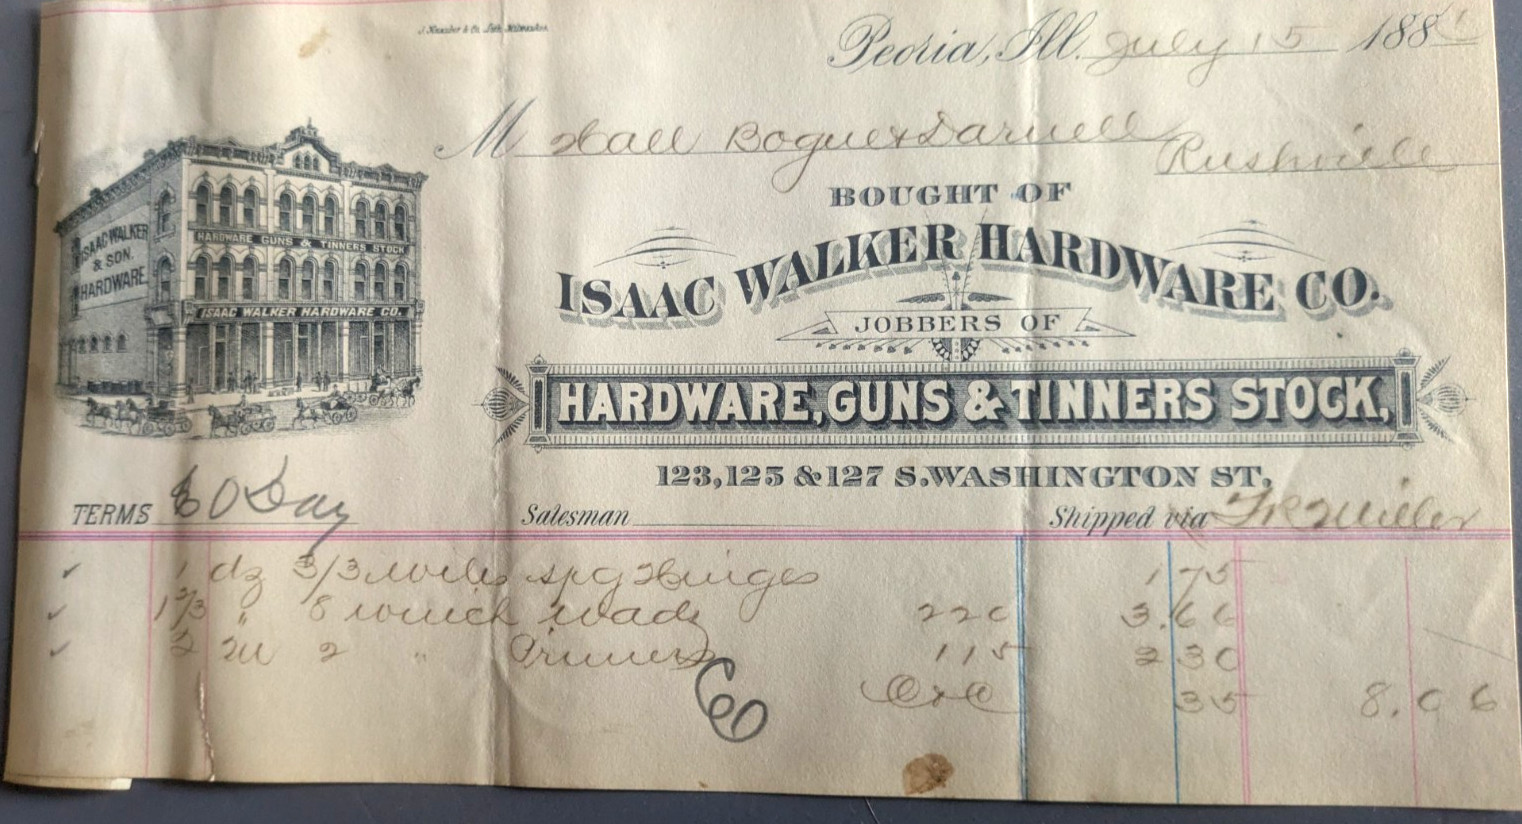 J. Knauber & Co. Lith. Milwaukee.
Peoria, Ill. July 15 188
M Hall Bogue & Darnell
Rushville
BOUGHT OF
ISAAC WALKER HARDWARE CO.
JOBBERS OF
HARDWARE, GUNS & TINNERS STOCK,
123, 125 & 127 S. WASHINGTON ST.
ISAAC WALKER
& SON.
HARDWARE.
HARDWARE GUNS & TINNERS STOCK
ISAAC WALKER HARDWARE CO.
TERMS 60 Day
Salesman
Shipped via Miller
1 dz 3/3 spg Hinges 1 75
1 2/3 " 8 wads 220 3.66
2 2 " Primers 115 2 30
35 8.06